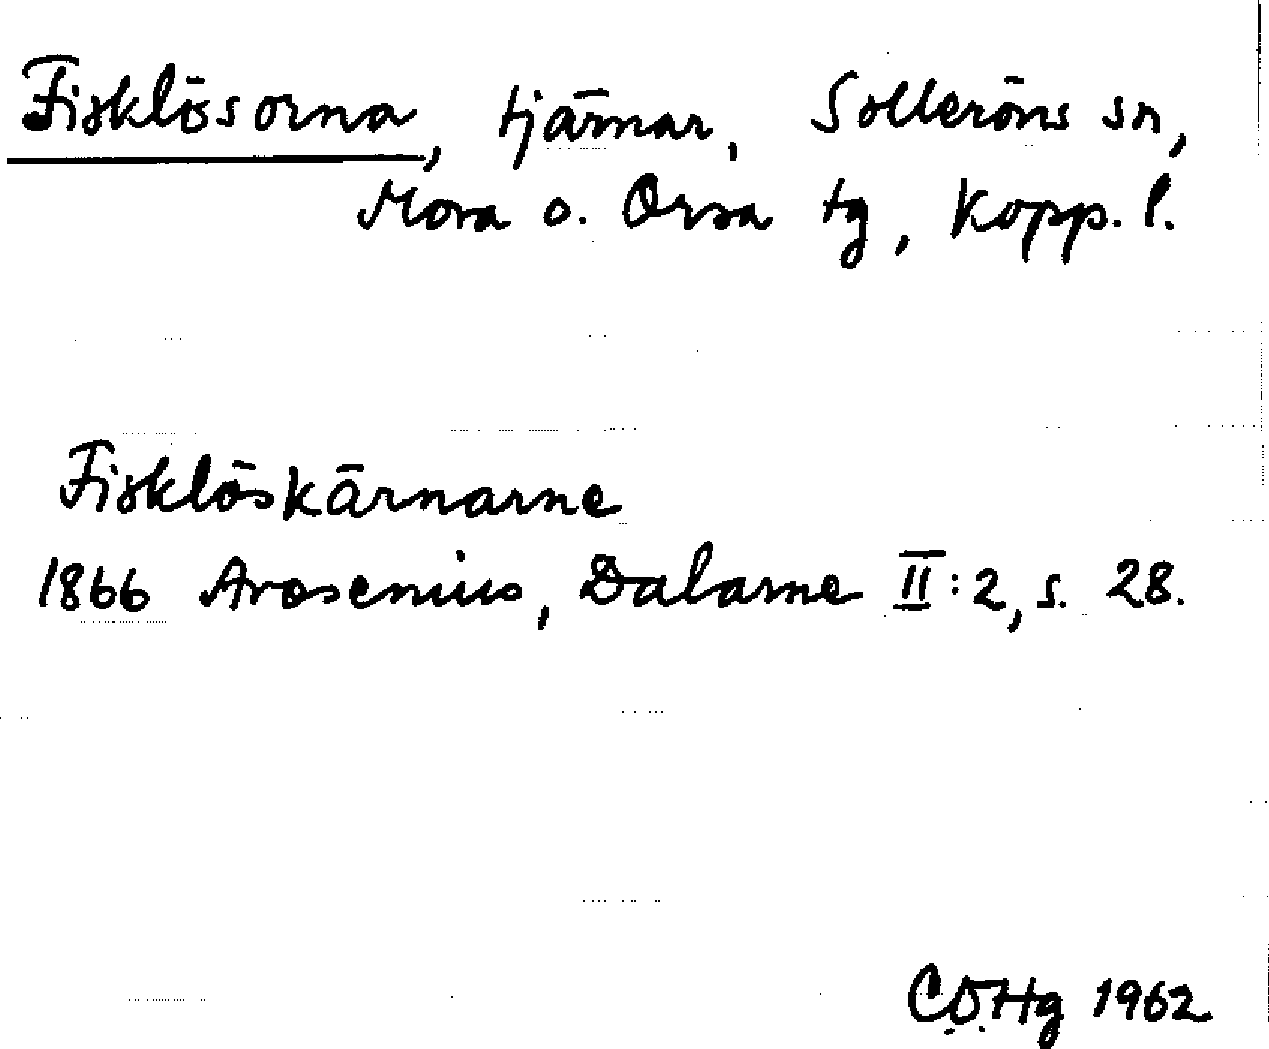 Fisklösorna, tjärnar, Solleröns sn,
Mora o. Orsa tg, Kopp. l.
Fisklöskärnarne
1866 Arosenius, Dalarne II:2, s. 28.
C.O.Hg 1962